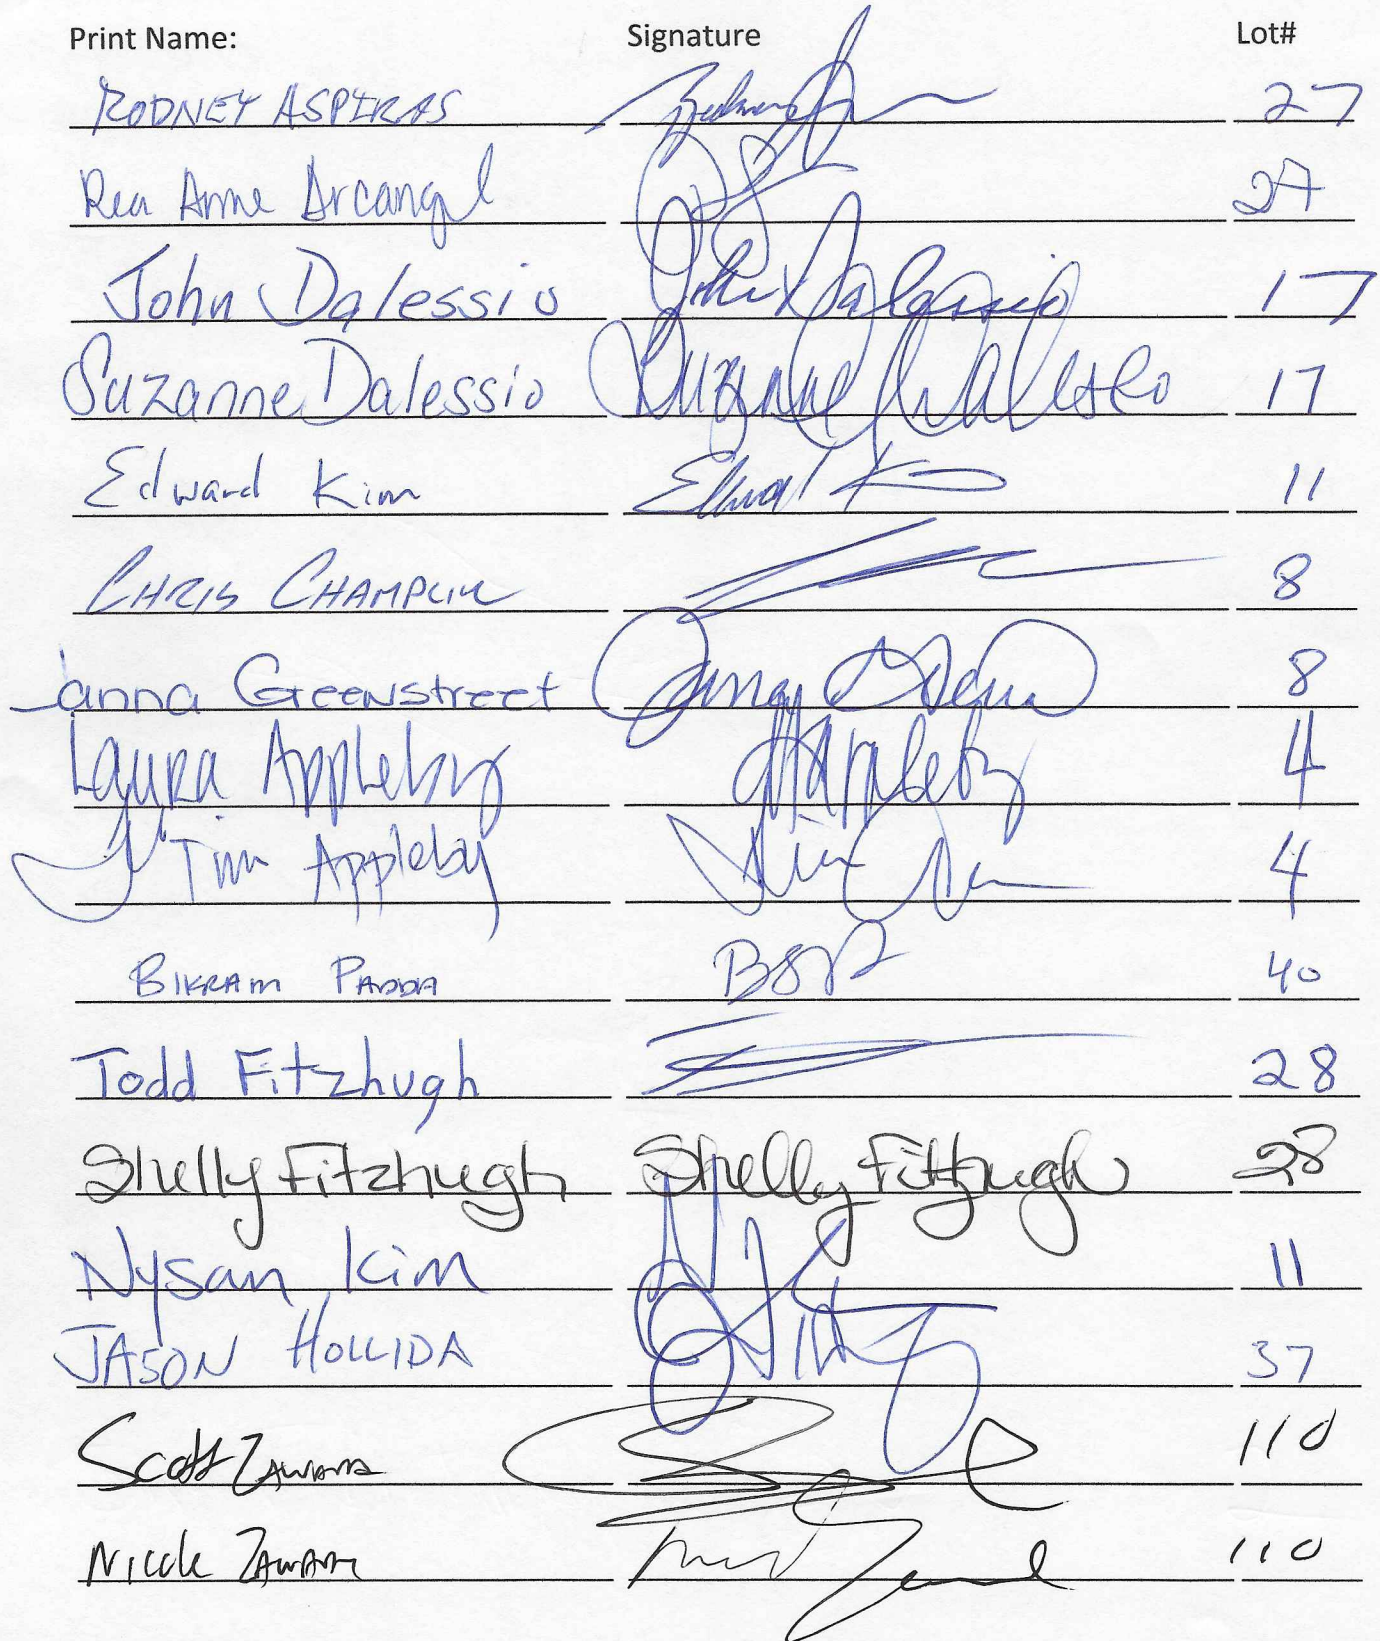 Print Name: Signature Lot#
RODNEY ASPIRAS 27
Rea Anne Arcangel 27
John Dalessio John Dalessio 17
Suzanne Dalessio Suzanne Dalessio 17
Edward Kim Edward K 11
CHRIS CHAMPLIN 8
Janna Greenstreet 8
Laura Appleby Appleby 4
Tim Appleby Tim 4
BIKRAM PADDA 40
Todd Fitzhugh 28
Shelly Fitzhugh Shelly Fitzhugh 28
Nysan Kim 11
JASON HOLLIDA 37
Scott 110
Nicole 110